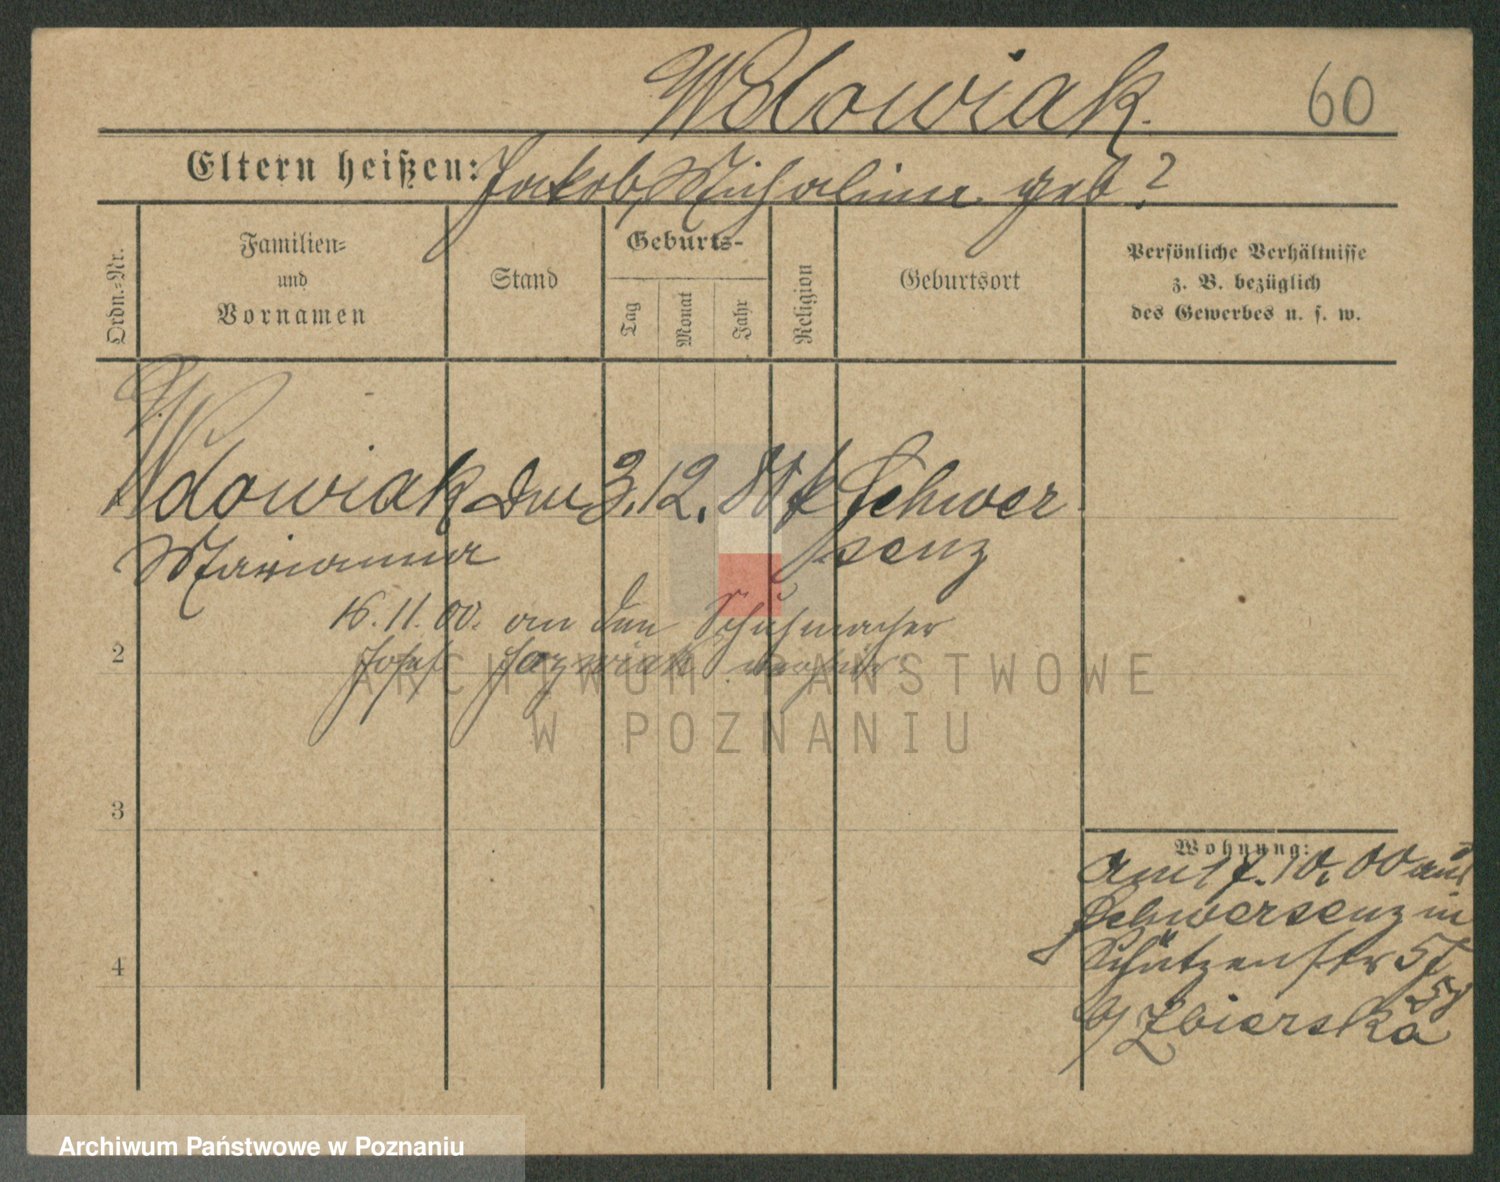 Wdowiak. 60
Eltern heißen: Jakob, Michalina geb?
Ordn.-Nr.
Familien-
und
Vornamen
Stand
Geburts-
Tag
Monat
Jahr
Religion
Geburtsort
Persönliche Verhältnisse
z. B. bezüglich
des Gewerbes u. s. w.
Wdowiak 3. 12. k Schwer
Marianna senz
16.11.00. an den Schuhmacher
2
Josef
3
4
Wohnung:
am 17.10.00 aus
Schwersenz in
Schützenstr 57
b/ Zbierska
ARCHIWUM PAŃSTWOWE
W POZNANIU
Archiwum Państwowe w Poznaniu